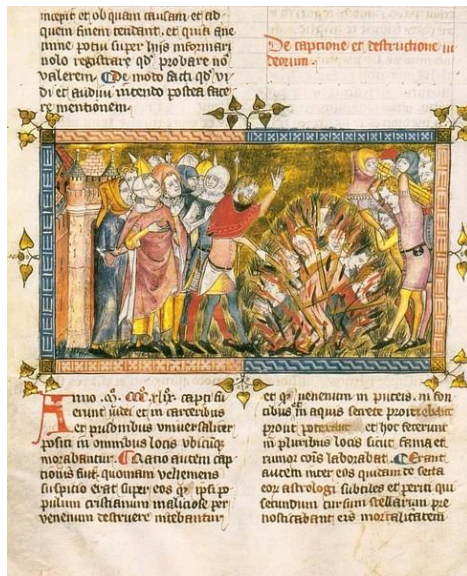 incepit et ob quam causam et ad
quem finem tendant. et quia a ne
mine potui super hijs informari
nolo registrare qd' probare no
valerem. De modo facti qd' vi
di et audiui intendo postea face
re mentionem.
De captione et destructione iu
deorum.
Anno. Mo. CCCo. xlix. capti fu
erunt iudei et in carceribus
et prisonibus vniuersaliter
positi in omnibus locis vbicūq;
morabantur. Ratio autem cap
tionis fuit. quoniam vehemens
suspicio erat super eos qz ipsi po
pulum cristianum maliciose per
venenum destruere nitebantur
et qz uenenum in puteis. in fon
cibus in aquis secrete proiciebant
prout poterant et hoc fecerunt
in pluribus locis sicut fama et
rumor cōis laborabat. Erant
autem inter eos quidam de secta
eor astrologi subtiles et periti qui
secundum cursum stellarum pre
nosticabant eis mortalitatem